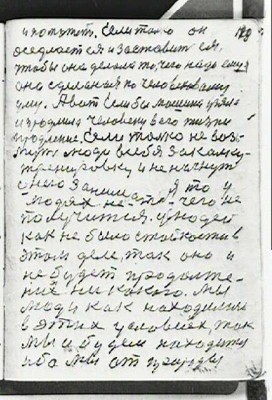 и попутт. Если только он
оседлается и заставит ся,
чтобы она делала то, что надо ему,
она сделаная по человечьему
уму. А вот если бы машину
человеку его жизни
продление. Если только не воз-
мут люди в себя закалку-
тренировку и не начнут
ею заниматся, то у
людях не-то-чего не
получится. у людей
как не было стойкости в
этом деле, так оно и
не будет продолже-
ния ни какого. мы
люди как находились
в этих условиях, так
мы и будем находится
ибо мы от природы